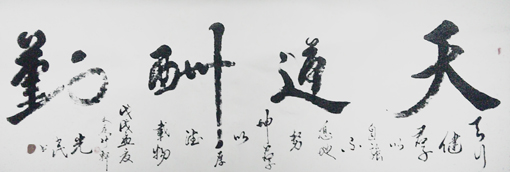 天道酬勤
天行
健
君子
以
自强
不
息地
势
坤君子
以
厚
德
载物
戊戌
光
民